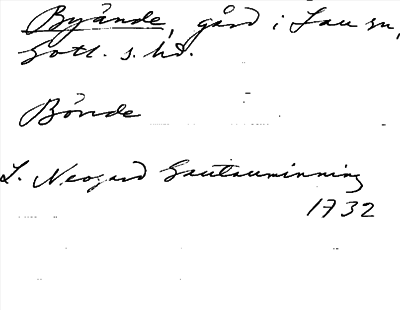 Byände, gård i Lau sn,
Gotl. s. hd.
Bönde
L. Neogard Gautauminning
1732